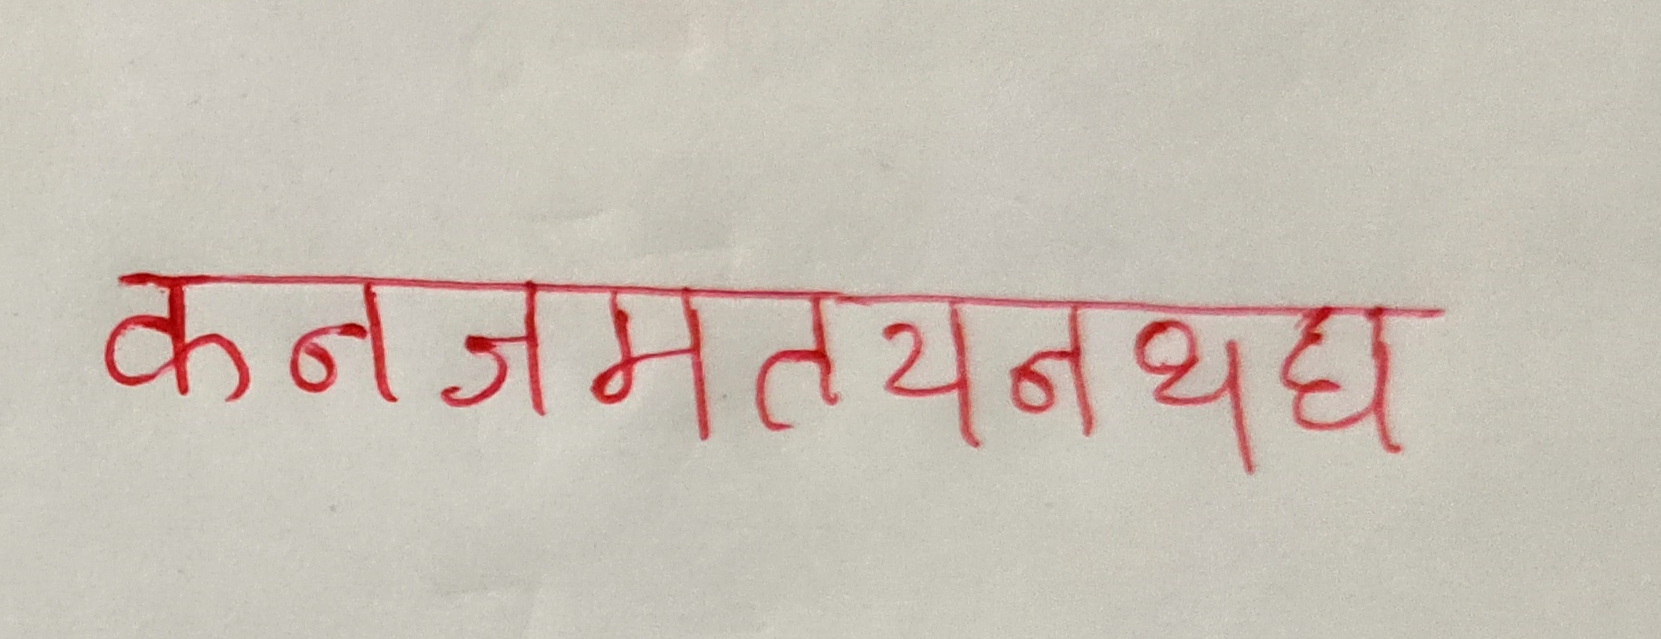 कनजमतयनथघ